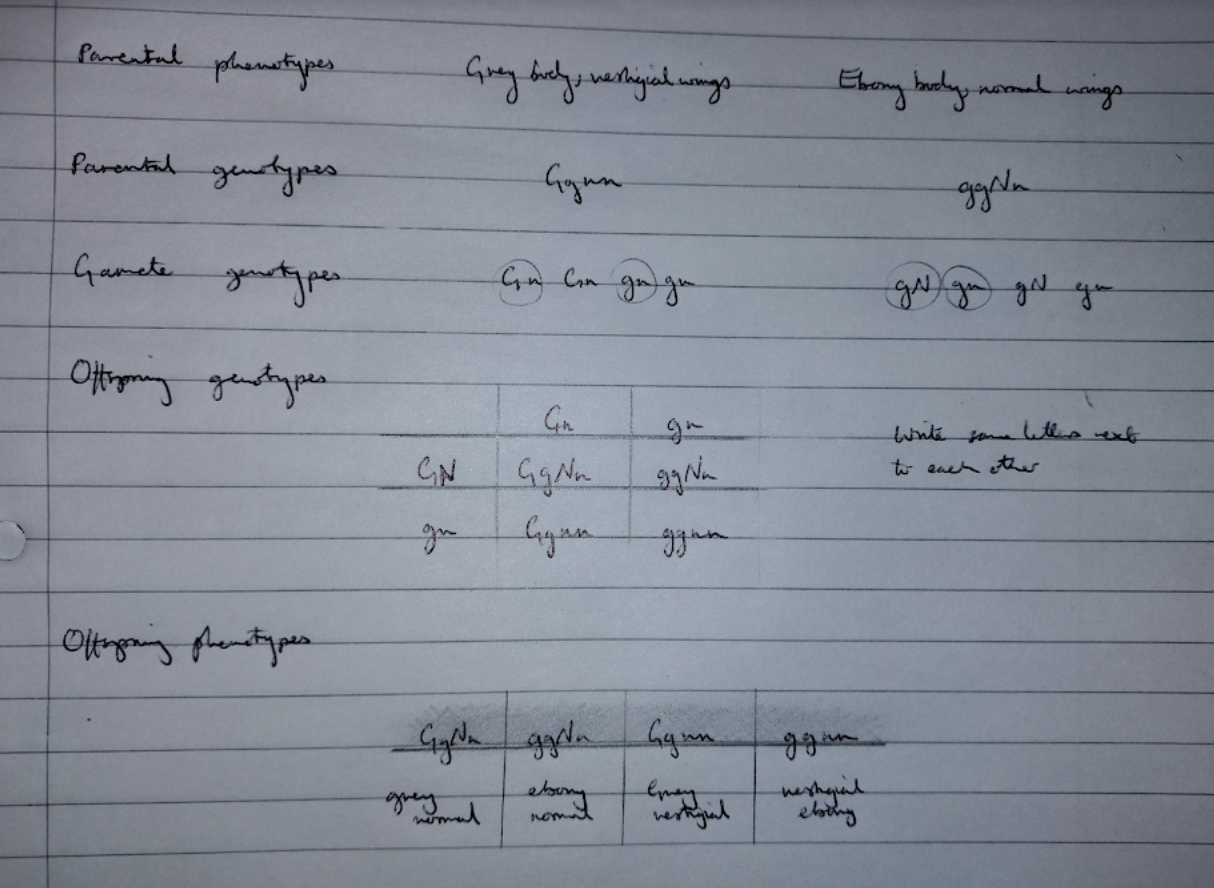 Parental phenotypes Grey body, vestigial wings Ebony body, normal wings
Parental genotypes Ggnn ggNn
Gamete genotypes Gn Gn gn gn gN gn gN gn
Offspring genotypes
Gn gn
Write same letters next
to each other
GN GgNn ggNn
gn Ggnn ggnn
Offspring phenotypes
GgNn ggNn Ggnn ggnn
grey ebony Grey vestigial
normal normal vestigial ebony